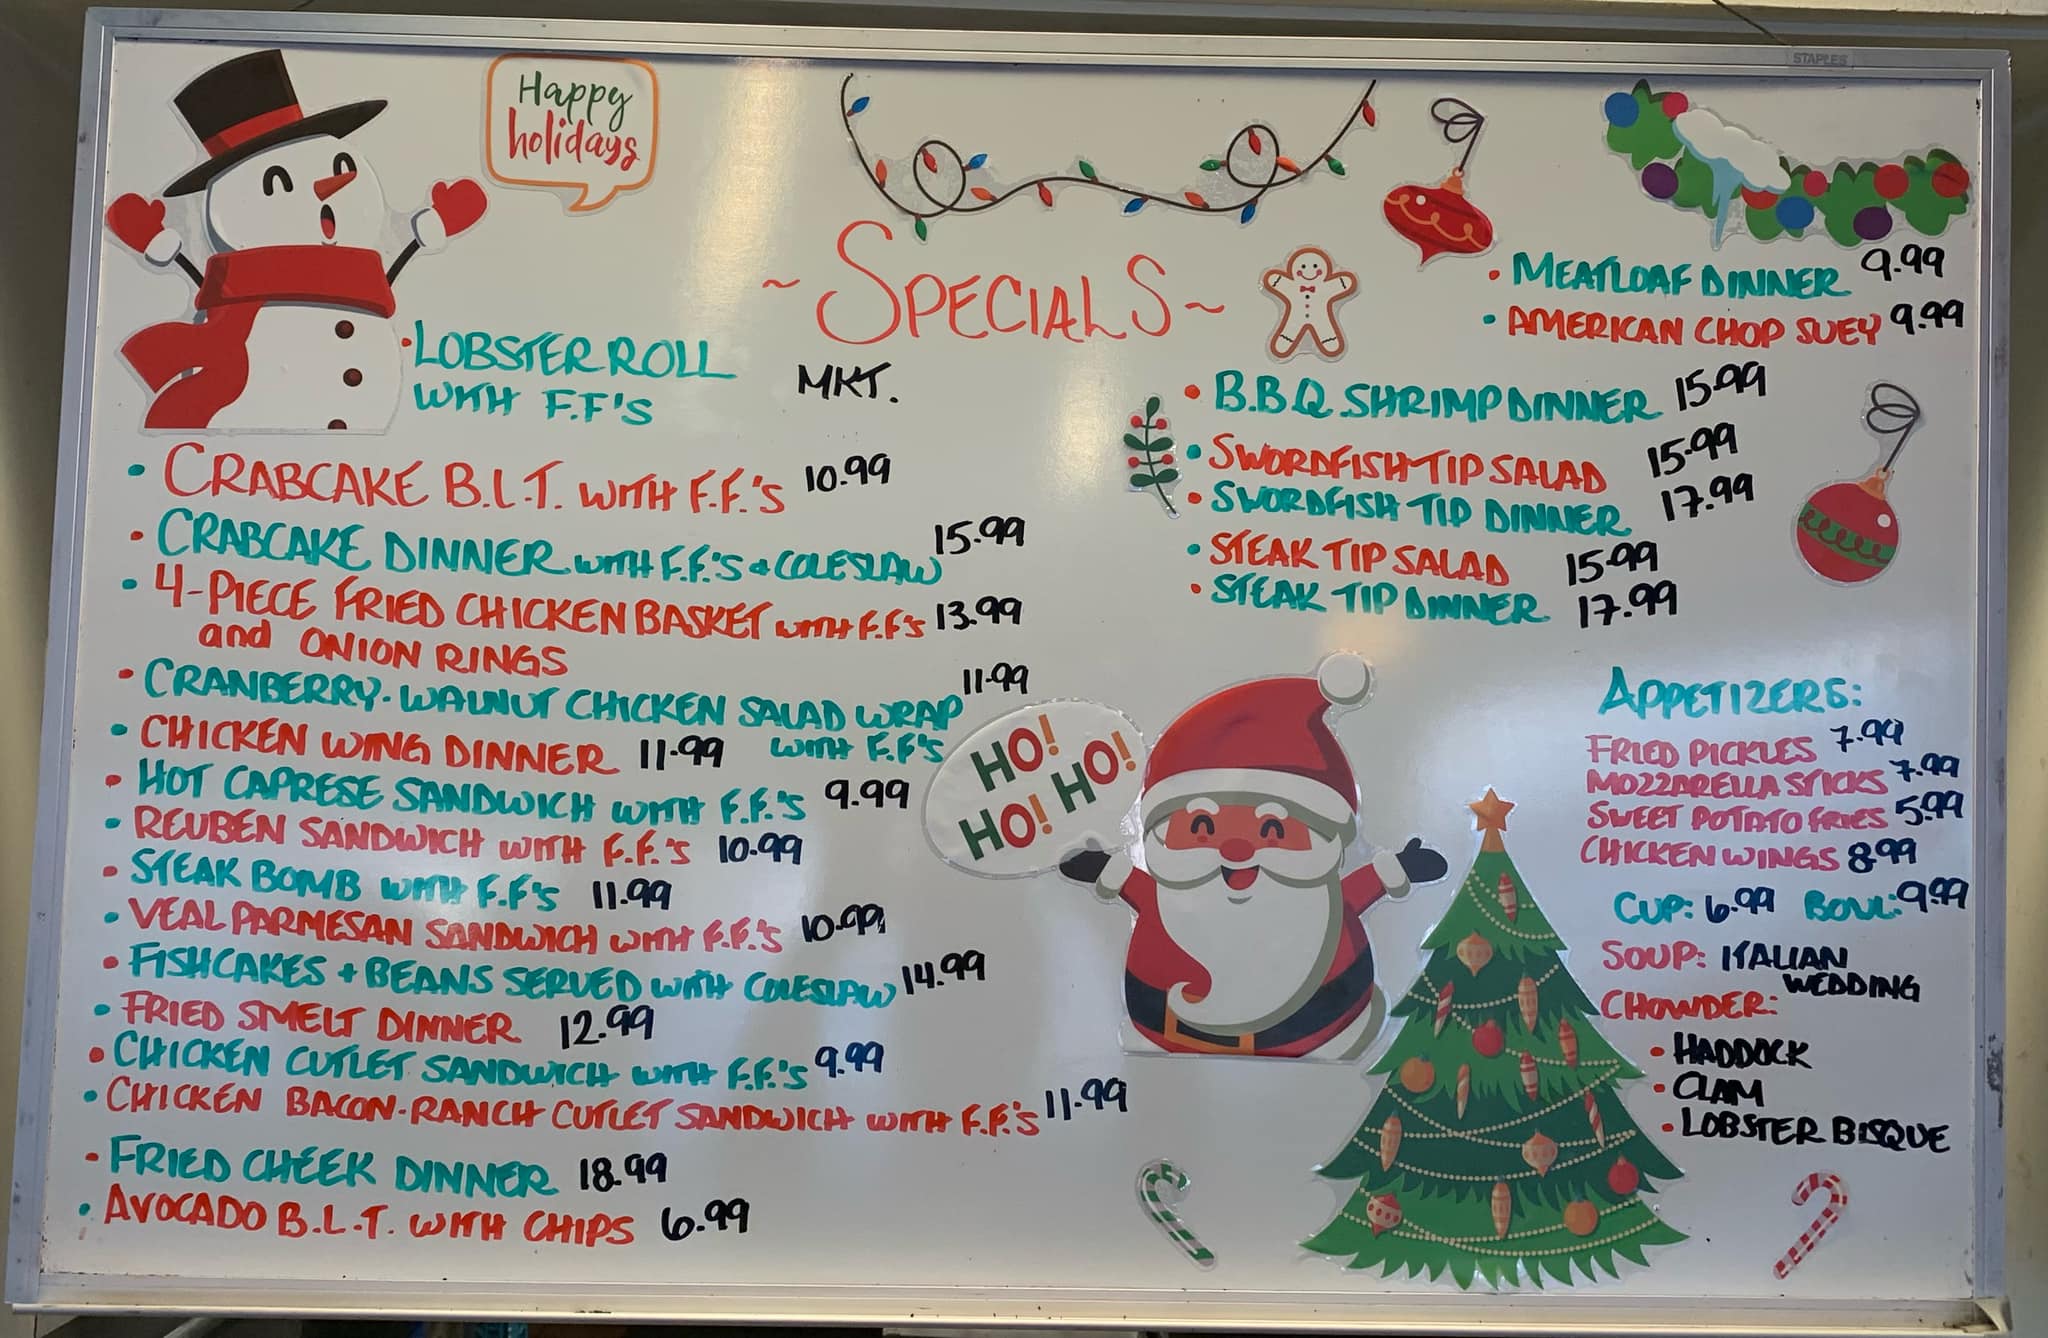 STAPLES
Happy
holidays
~ SPECIALS ~
• LOBSTER ROLL
WITH F.F'S MKT.
• CRABCAKE B.L.T. WITH F.F.'S 10.99
• CRABCAKE DINNER WITH F.F.'S + COLESLAW 15.99
• 4-PIECE FRIED CHICKEN BASKET WITH F.F'S 13.99
and ONION RINGS
• CRANBERRY-WALNUT CHICKEN SALAD WRAP 11.99
WITH F.F'S
• CHICKEN WING DINNER 11.99
• HOT CAPRESE SANDWICH WITH F.F.'S 9.99
• REUBEN SANDWICH WITH F.F.'S 10.99
• STEAK BOMB WITH F.F'S 11.99
• VEAL PARMESAN SANDWICH WITH F.F.'S 10.99
• FISHCAKES + BEANS SERVED WITH COLESLAW 14.99
• FRIED SMELT DINNER 12.99
• CHICKEN CUTLET SANDWICH WITH F.F.'S 9.99
• CHICKEN BACON-RANCH CUTLET SANDWICH WITH F.F.'S 11.99
• FRIED CHEEK DINNER 18.99
• AVOCADO B.L.T. WITH CHIPS 6.99
• MEATLOAF DINNER 9.99
• AMERICAN CHOP SUEY 9.99
• B.B.Q. SHRIMP DINNER 15.99
• SWORDFISH TIP SALAD 15.99
• SWORDFISH TIP DINNER 17.99
• STEAK TIP SALAD 15.99
• STEAK TIP DINNER 17.99
HO!
HO! HO!
APPETIZERS:
FRIED PICKLES 7.99
MOZZARELLA STICKS 7.99
SWEET POTATO FRIES 5.99
CHICKEN WINGS 8.99
CUP: 6.99 BOWL: 9.99
SOUP: ITALIAN
WEDDING
CHOWDER:
• HADDOCK
• CLAM
• LOBSTER BISQUE